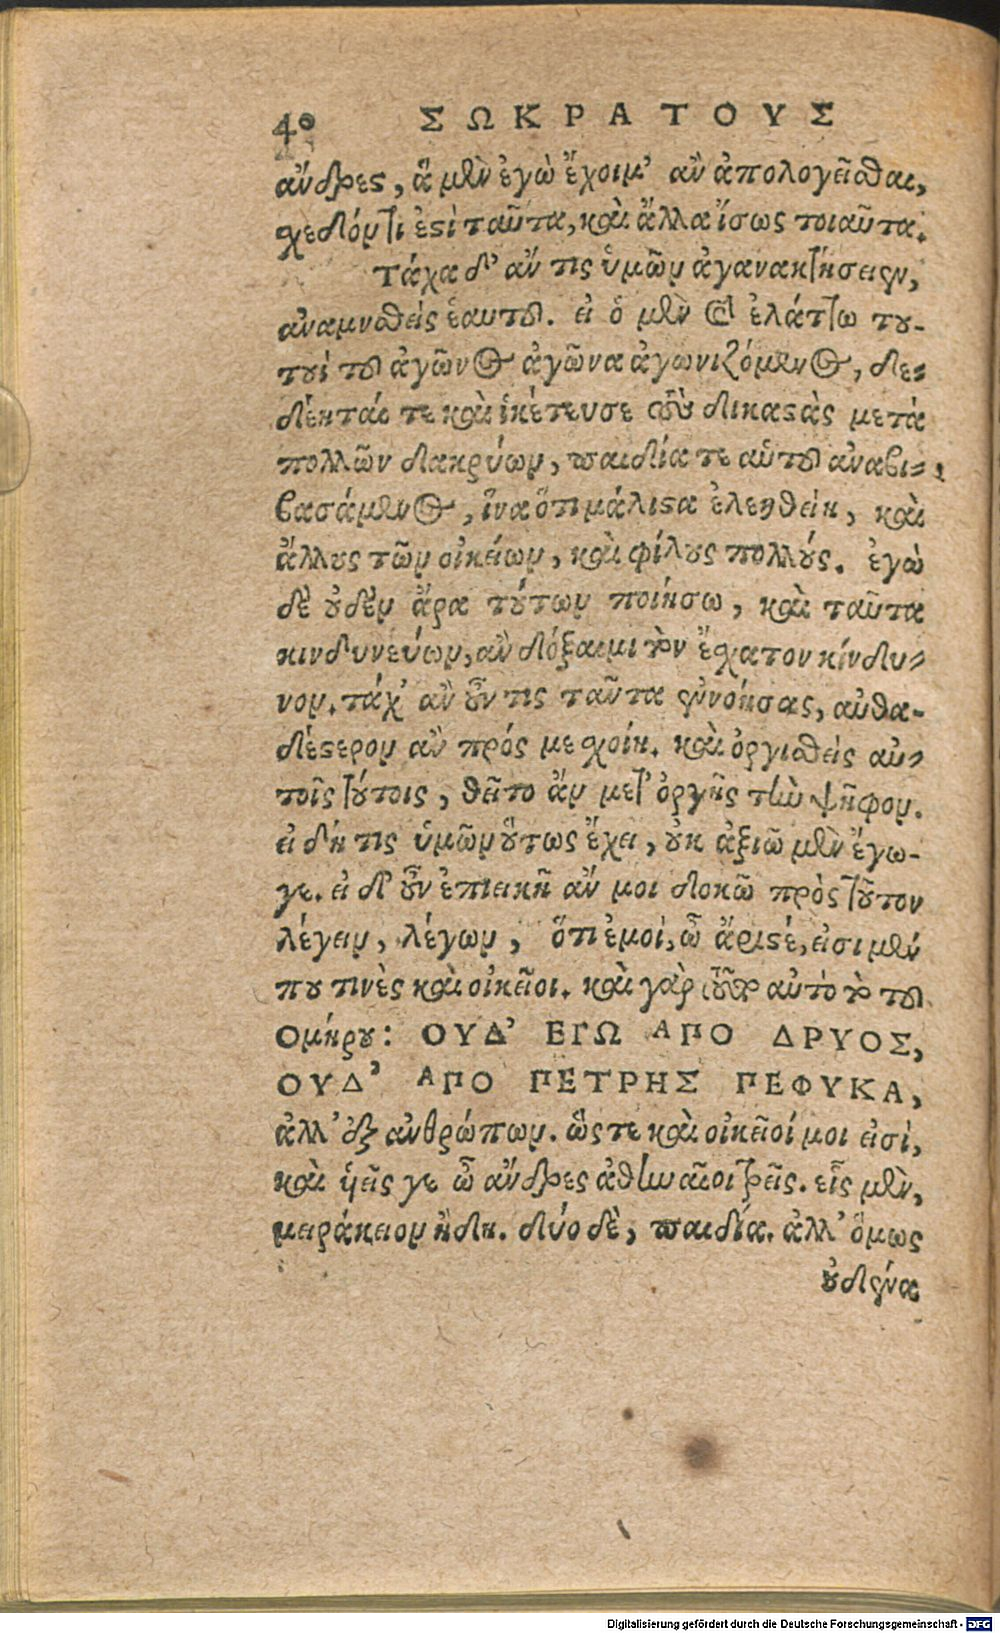 40 ΣΩΚΡΑΤΟΥΣ
ἄνδρες, ἃ μὲν ἐγὼ ἔχοιμ' ἂν ἀπολογεῖσθαι,
σχεδόν τι ἐστὶ ταῦτα, καὶ ἄλλα ἴσως τοιαῦτα.
Τάχα δ' ἄν τις ὑμῶν ἀγανακτήσειεν,
ἀναμνησθεὶς ἑαυτοῦ. εἰ ὁ μὲν καὶ ἐλάττω του-
τουῒ τοῦ ἀγῶνος ἀγῶνα ἀγωνιζόμενος, δε-
δέηταί τε καὶ ἱκέτευσε τοὺς δικαστὰς μετὰ
πολλῶν δακρύων, παιδία τε αὑτοῦ ἀναβι-
βασάμενος, ἵνα ὅτι μάλιστα ἐλεηθείη, καὶ
ἄλλους τῶν οἰκείων, καὶ φίλους πολλούς. ἐγὼ
δὲ οὐδὲν ἄρα τούτων ποιήσω, καὶ ταῦτα
κινδυνεύων, ἂν δόξαιμι τὸν ἔσχατον κίνδυ-
νον. τάχ' ἂν οὖν τις ταῦτα ἐννοήσας, αὐθα-
δέστερον ἂν πρός με σχοίη. καὶ ὀργισθεὶς αὐ-
τοῖς τούτοις, θεῖτο ἂν μετ' ὀργῆς τὴν ψῆφον.
εἰ δή τις ὑμῶν οὕτως ἔχει, οὐκ ἀξιῶ μὲν ἔγω-
γε. εἰ δ' οὖν ἐπιεικῆ ἄν μοι δοκῶ πρὸς τοῦτον
λέγειν, λέγων, ὅτι ἐμοὶ, ὦ ἄριστέ, εἰσι μέν
που τινὲς καὶ οἰκεῖοι. καὶ γὰρ τοῦτο αὐτὸ τὸ τοῦ
Ομήρου: ΟΥΔ' ΕΓΩ ΑΠΟ ΔΡΥΟΣ,
ΟΥΔ' ΑΠΟ ΠΕΤΡΗΣ ΠΕΦΥΚΑ,
ἀλλ' ἐξ ἀνθρώπων. ὥς τε καὶ οἰκεῖοί μοι εἰσὶ,
καὶ ὑεῖς γε ὦ ἄνδρες ἀθηναῖοι τρεῖς. εἷς μὲν,
μειράκιον ἤδη. δύο δὲ, παιδία. ἀλλ' ὅμως
οὐδένα
Digitalisierung gefördert durch die Deutsche Forschungsgemeinschaft - DFG